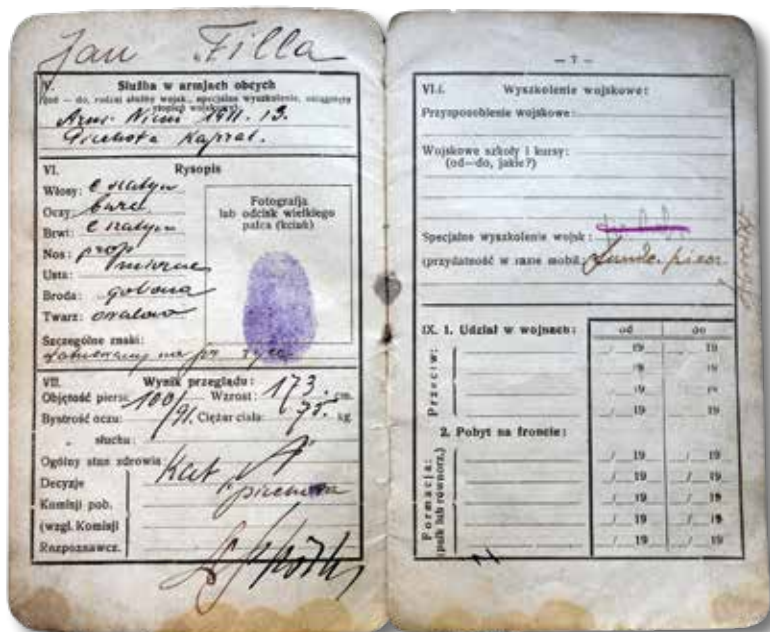 Jan Filla
V. Służba w armjach obcych
(od — do, rodzaj służby wojsk., specjalne wyszkolenie, osiągnięty
stopień wojskowy)
Arm. Niem 1911. 13.
Piechota Kapral.
VI. Rysopis
Włosy:
Oczy: bure
Brwi:
Nos: prop
Usta: mierne
Broda: golona
Twarz: owalowa
Szczególne znaki:
na pr.
Fotografja
lub odcisk wielkiego
palca (kciuk)
VII. Wynik przeglądu:
Objętość piersi: 100/91. Wzrost: 173. cm.
Bystrość oczu: Ciężar ciała: 75. kg
„ słuchu:
Ogólny stan zdrowia: Kat A
Decyzje piechota
Komisji pob.
(wzgl. Komisji
Rozpoznawcz.
— 7 —
VIII. Wyszkolenie wojskowe:
Przysposobienie wojskowe:
Wojskowe szkoły i kursy:
(od—do, jakie?)
Specjalne wyszkolenie wojsk:
(przydatność w razie mobil.)
IX. 1. Udział w wojnach:
od do
Przeciw:
/ 19 / 19
/ 19 / 19
/ 19 / 19
/ 19 / 19
2. Pobyt na froncie:
Formacja:
(pułk lub równorz.)
/ 19 / 19
/ 19 / 19
/ 19 / 19
/ 19 / 19
/ 19 / 19